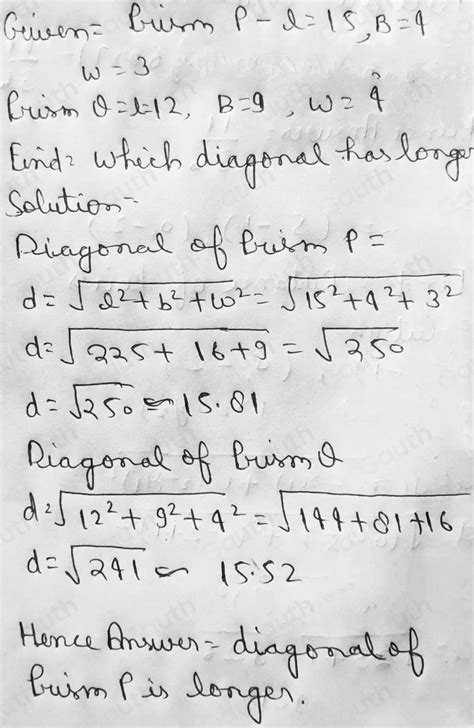 Given = Prism P - l = 15, B = 4
w = 3
Prism Q = l = 12, B = 9, w = 4
Find = which diagonal has longer
Solution =
Diagonal of Prism P =
d = √l² + b² + w² = √15² + 4² + 3²
d = √225 + 16 + 9 = √250
d = √250 ≈ 15.81
Diagonal of Prism Q
d = √12² + 9² + 4² = √144 + 81 + 16
d = √241 ≈ 15.52
Hence Answer = diagonal of
Prism P is longer.